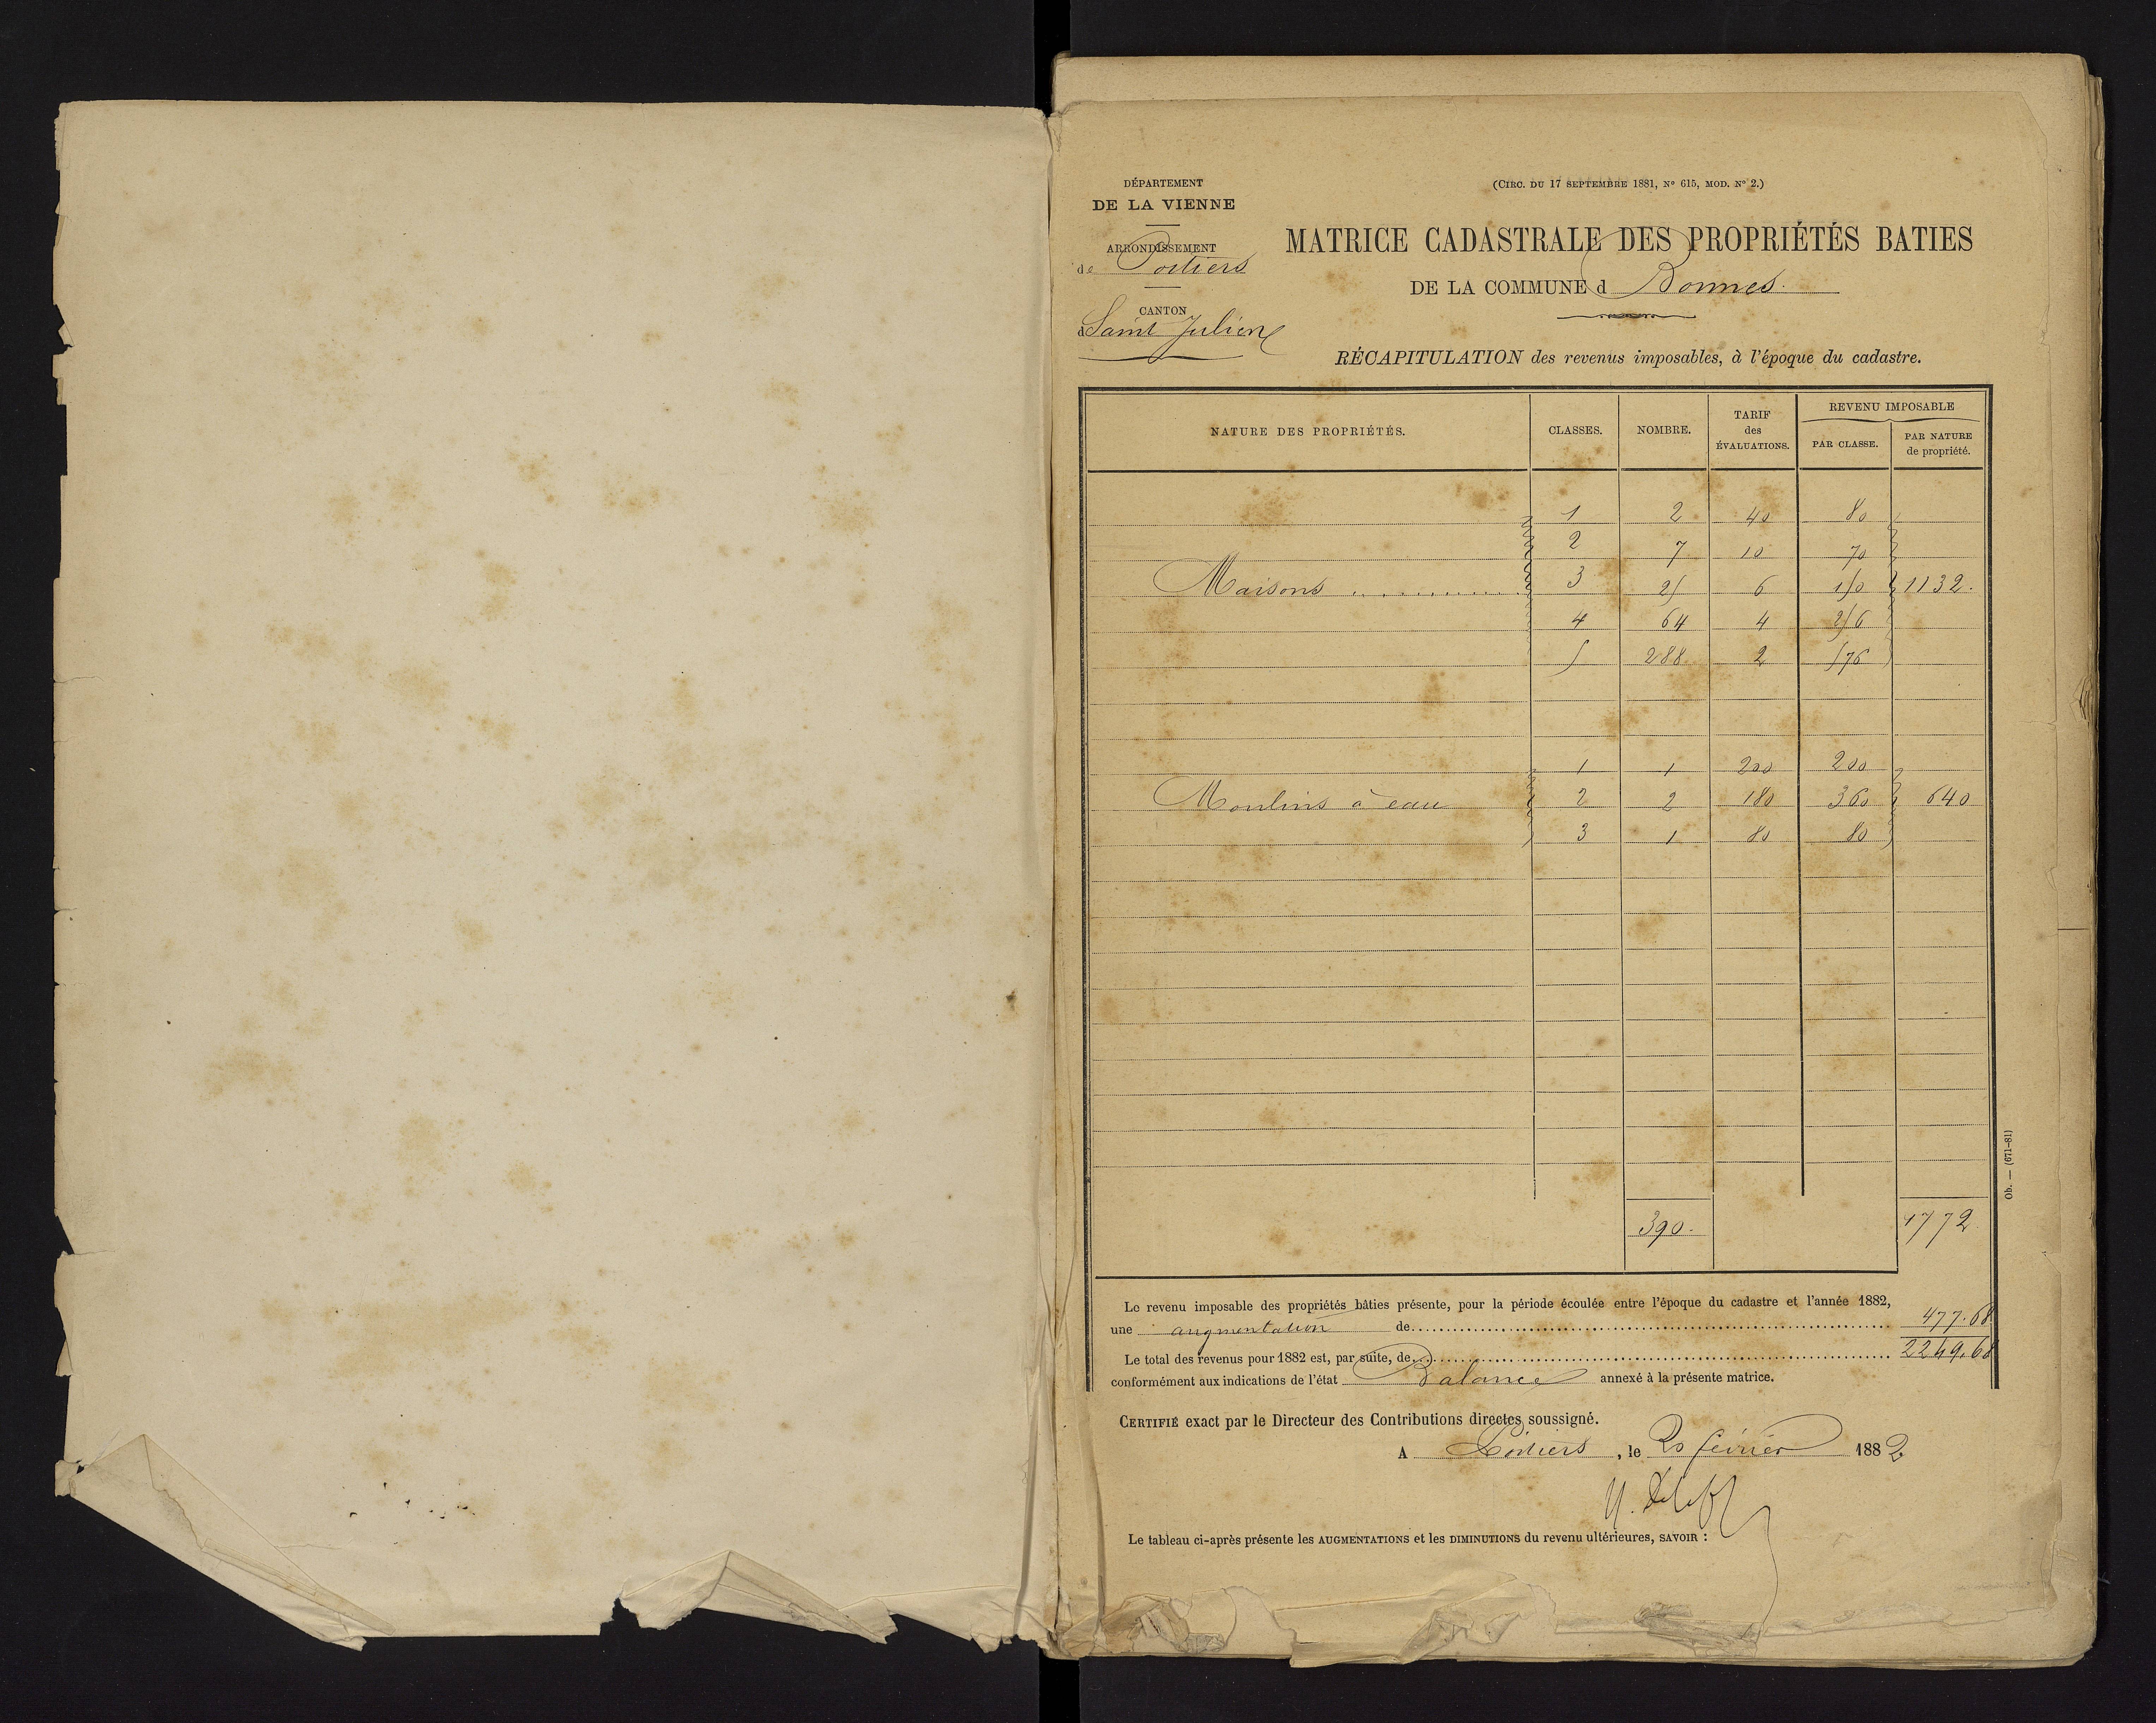 DÉPARTEMENT
DE LA VIENNE
ARRONDISSEMENT
de Poitiers
CANTON
d Saint Julien
(CIRC. DU 17 SEPTEMBRE 1881, Nº 615, MOD. Nº 2.)
MATRICE CADASTRALE DES PROPRIÉTÉS BATIES
DE LA COMMUNE d Bonnes.
RÉCAPITULATION des revenus imposables, à l'époque du cadastre.
NATURE DES PROPRIÉTÉS. CLASSES. NOMBRE. TARIF des ÉVALUATIONS. REVENU IMPOSABLE
PAR CLASSE. PAR NATURE de propriété.
1 2 40 80
2 7 10 70
Maisons 3 25 6 150 1132.
4 64 4 256
5 288 2 576
1 1 200 200
Moulins à eau 2 2 180 360 640
3 1 80 80
390. 1772
Le revenu imposable des propriétés bâties présente, pour la période écoulée entre l'époque du cadastre et l'année 1882,
une augmentation de 477.68
Le total des revenus pour 1882 est, par suite, de 2249.68
conformément aux indications de l'état Balance annexé à la présente matrice.
CERTIFIÉ exact par le Directeur des Contributions directes soussigné.
A Poitiers, le 20 février 1882
Le tableau ci-après présente les AUGMENTATIONS et les DIMINUTIONS du revenu ultérieures, SAVOIR :
Ob. — (671-81)